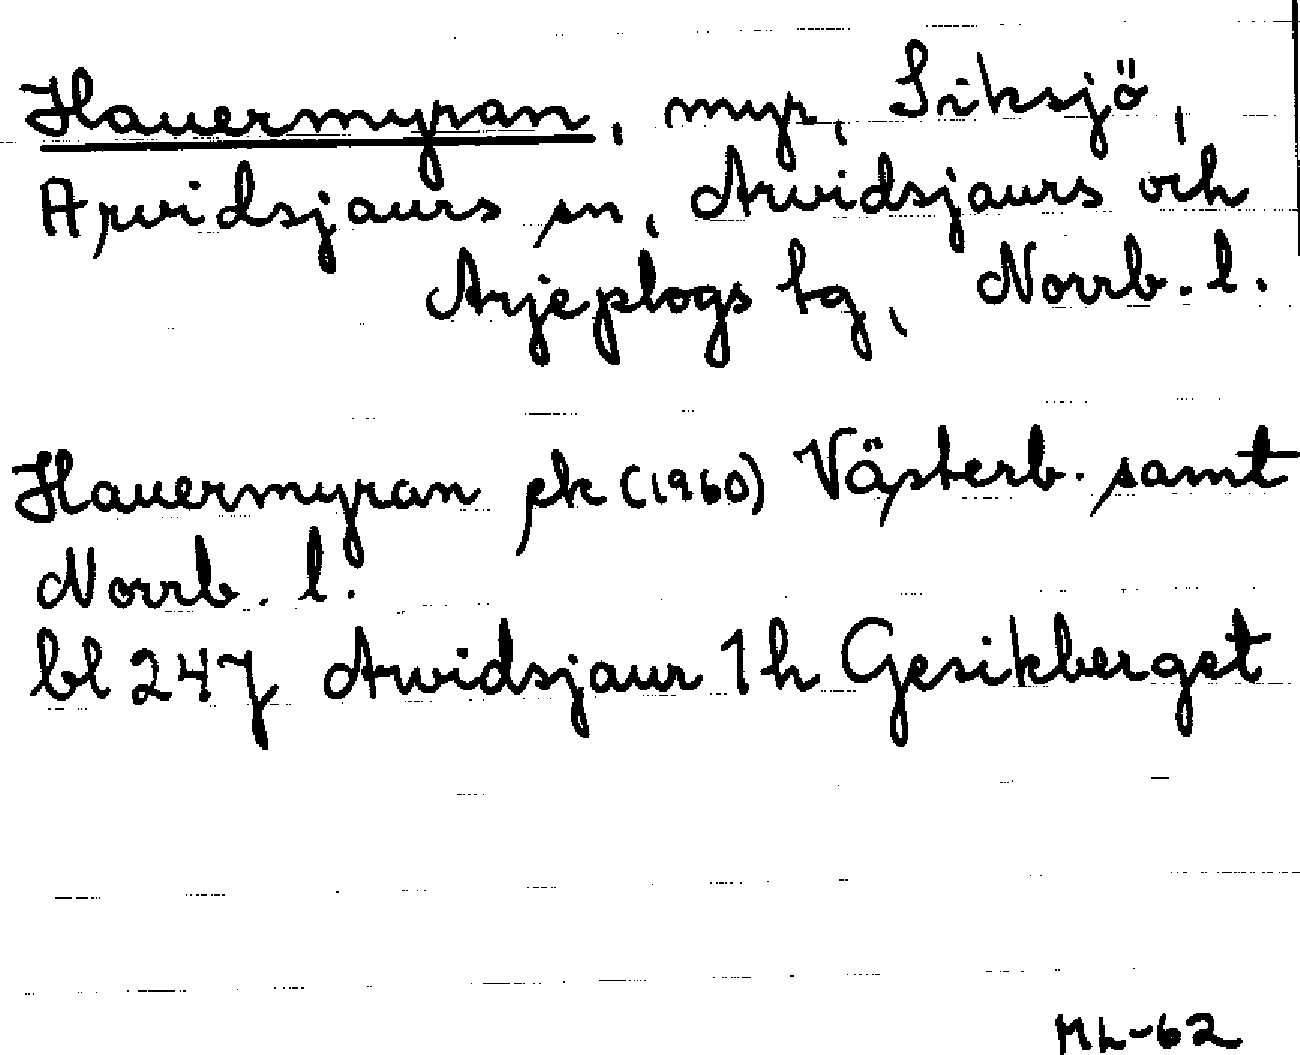 Hauermyran, myr, Siksjö,
Arvidsjaurs sn, Arvidsjaurs och
Arjeplogs tg, Norrb. l.
Hauermyran ek (1960) Västerb. samt
Norrb. l.
bl 247 Arvidsjaur 1h Gesikberget
ML-62